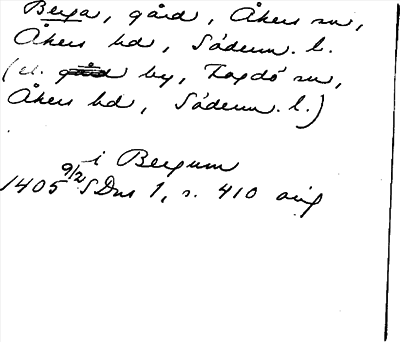 Berga, gård, Åkers sn,
Åkers hd, Söderm. l.
(el. gård by, Fogdö sn,
Åkers hd, Söderm. l.)
i Bergum
1405 9/2 SDns 1, s. 410 orig